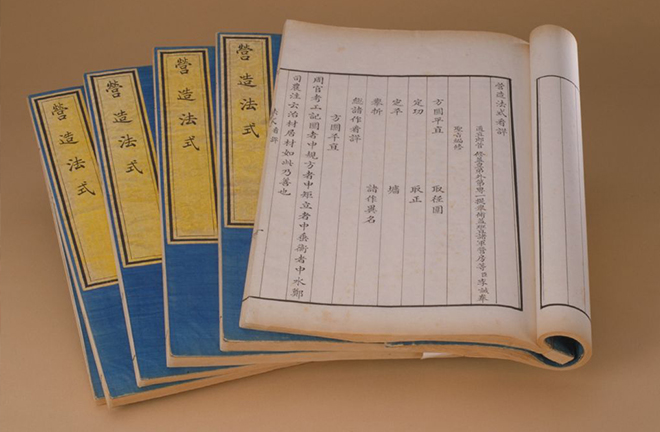 營造法式
營造法式
營造法式
營造法式
營造法式看詳
通直郎管修蓋皇弟外第專一提舉修蓋班直諸軍營房等臣李誡奉
聖旨編修
方圜平直 取徑圍
定功 取正
定平 牆
舉折 諸作異名
總諸作看詳
方圜平直
周官考工記圜者中規方者中矩立者中懸衡者中水鄭
司農注云治材居材如此乃善也
法式看詳